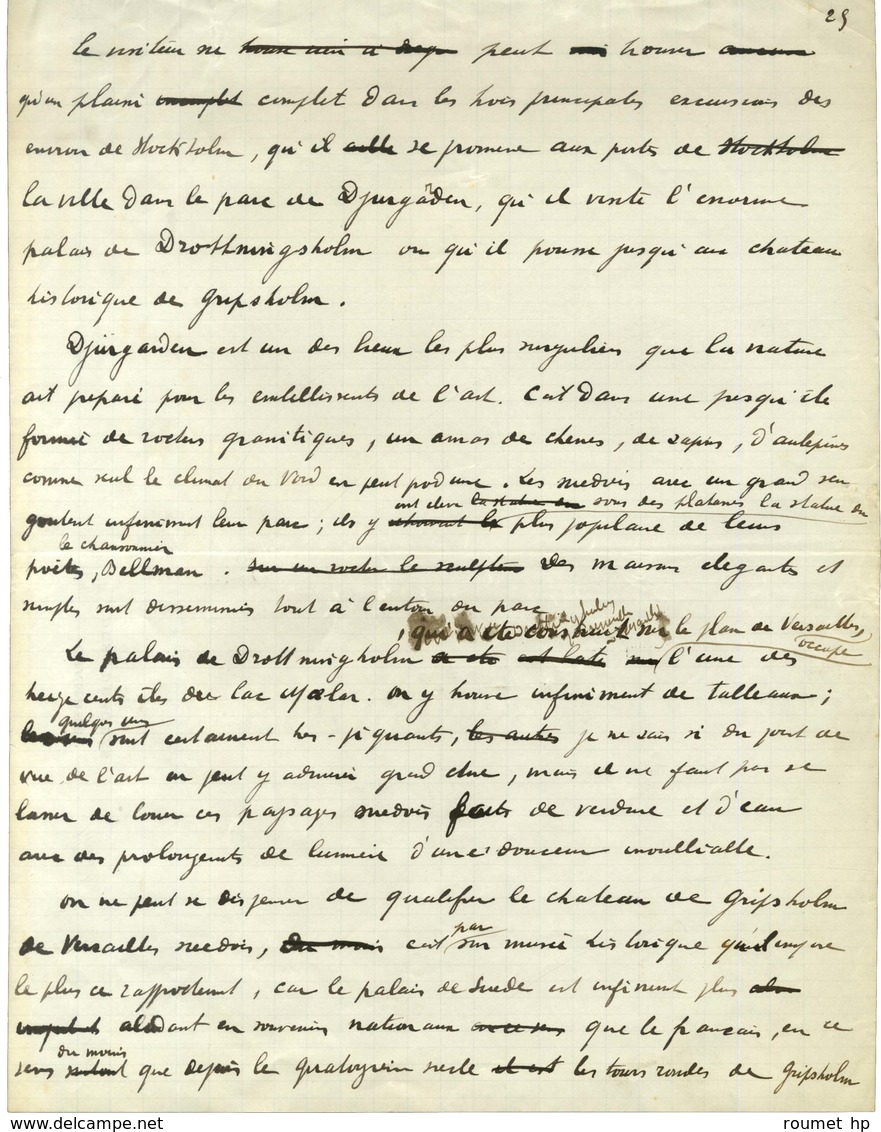 25
le visiteur ne peut trouver
qu'un plaisir complet dans les trois principales excursions des
environ de Stockholm, qu'il se promene aux portes de Stockholm
la ville dans le parc de Djurgården, qu'il visite l'enorme
palais de Drottningsholm ou qu'il pousse jusqu'au chateau
historique de Gripsholm.
Djurgarden est un des lieux les plus singuliers que la nature
ait preparé pour les embellissements de l'art. C'est dans une presqu'île
formée de rochers granitiques, un amas de chenes, de sapins, d'aubepines
comme seul le climat du Nord en peut produire. Les suedois avec un grand sens
ont elevé la statue du sous des platanes la statue du
goutent infiniment leur parc ; ils y plus populaire de leurs
le chansonnier
poëtes, Bellman. sur un rocher le sculpteur Des maisons elegantes et
simples sont disseminées tout à l'entour du parc
, qui a eté construit sur le plan de Versailles,
occupe
Le palais de Drottningholm l'une des
treize cents îles du lac Mælar. on y trouve infiniment de tableaux ;
quelques uns
sont certainement tres-piquants, les autres je ne sais si du point de
vue de l'art on peut y admirer grand chose, mais il ne faut pas se
lasser de louer ces paysages suedois faits de verdure et d'eau
avec des prolongements de lumière d'une douceur inoubliable.
on ne peut se dispenser de qualifier le chateau de Gripsholm
de Versailles suedois, c'est par son musée historique qu'il inspire
le plus ce rapprochement, car le palais de Suede est infiniment plus
abondant en souvenirs nationaux que le francais, en ce
du moins
sens surtout que depuis le quatorzieme siecle il est les tours rondes de Gripsholm
roumet hp